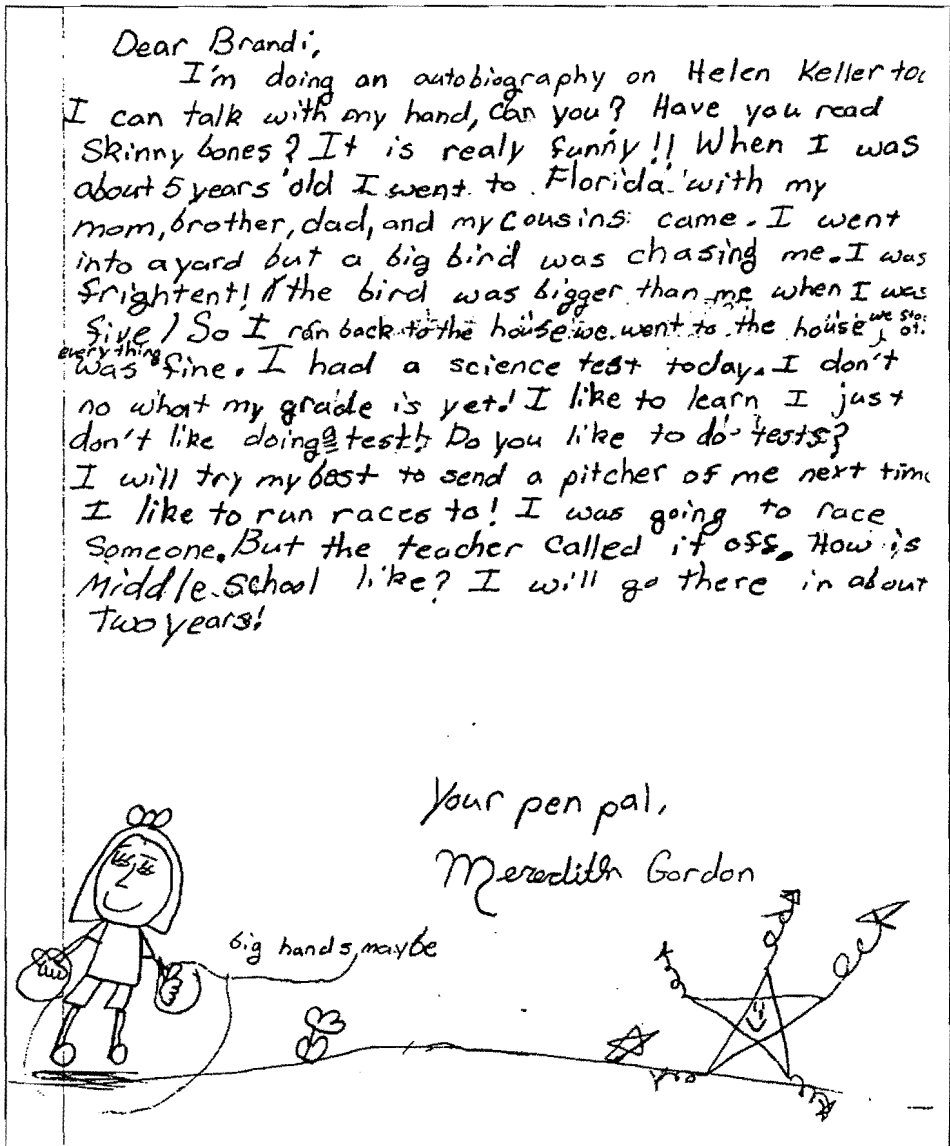 Dear Brandi,
I'm doing an autobiography on Helen Keller too
I can talk with my hand, can you? Have you read
Skinny bones? It is realy funny!! When I was
about 5 years old I went to Florida with my
mom, brother, dad, and my cousins came. I went
into a yard but a big bird was chasing me. I was
frightent! (the bird was bigger than me when I was
five) So I ran back to the house we went to the house we
everything
was fine. I had a science test today. I don't
no what my grade is yet! I like to learn I just
don't like doing a test! Do you like to do tests?
I will try my best to send a pitcher of me next time
I like to run races to! I was going to race
someone. But the teacher called it off. How is
Middle School like? I will go there in about
two years!
Your pen pal,
Meredith Gordon
big hands, maybe